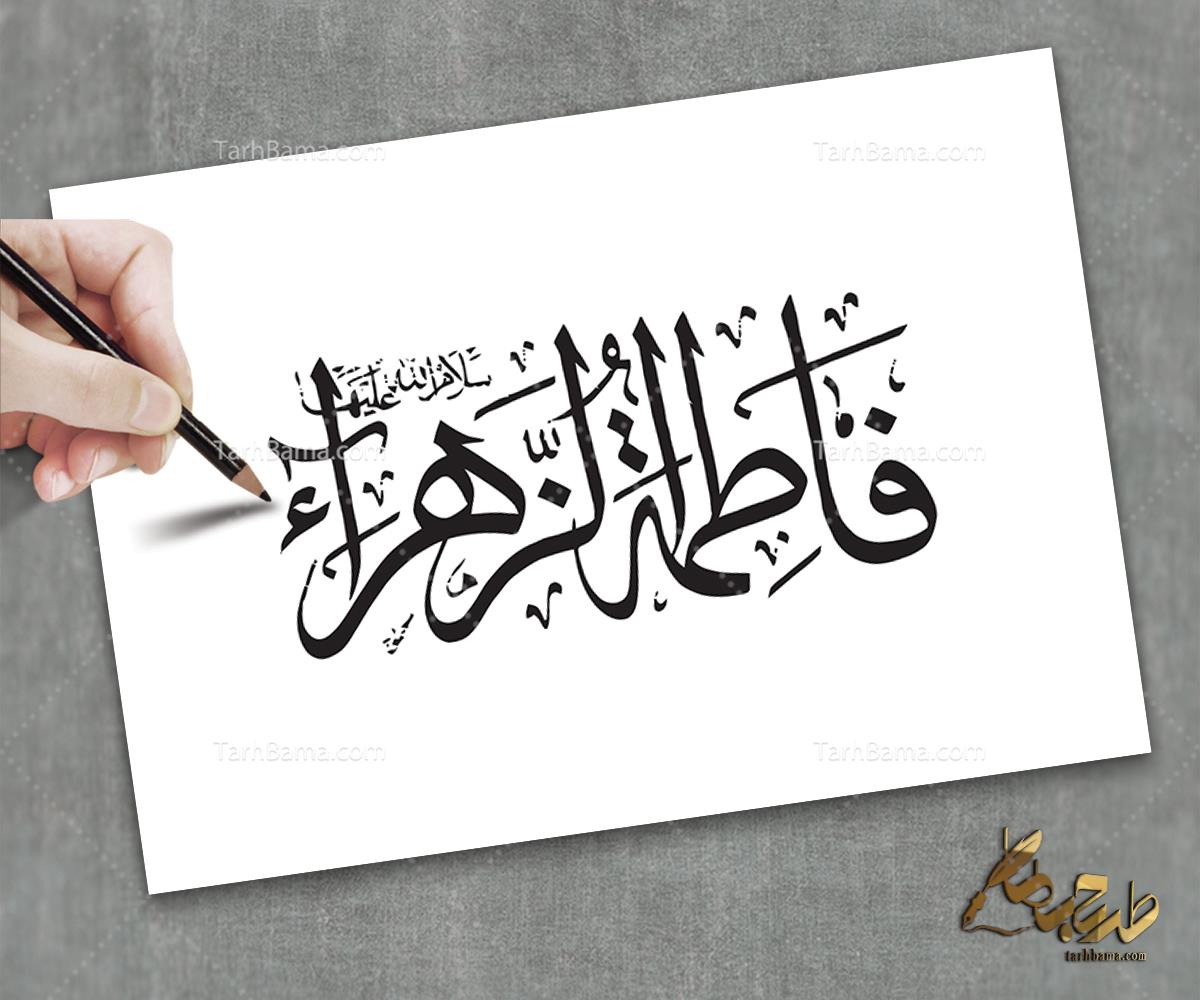 TarhBama.com TarhBama.com
سلام الله علیها
فاطِمَةُ الزَّهراء
TarhBama.com TarhBama.com
TarhBama.com TarhBama.com
طرح با ما
tarhbama.com